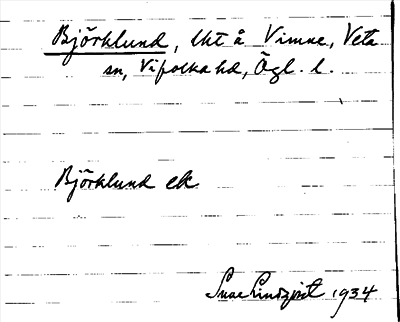 Björklund, lht å Vimne, Veta
sn, Vifolka hd, Ögl. l.
Björklund ek
Sune Lindqvist 1934